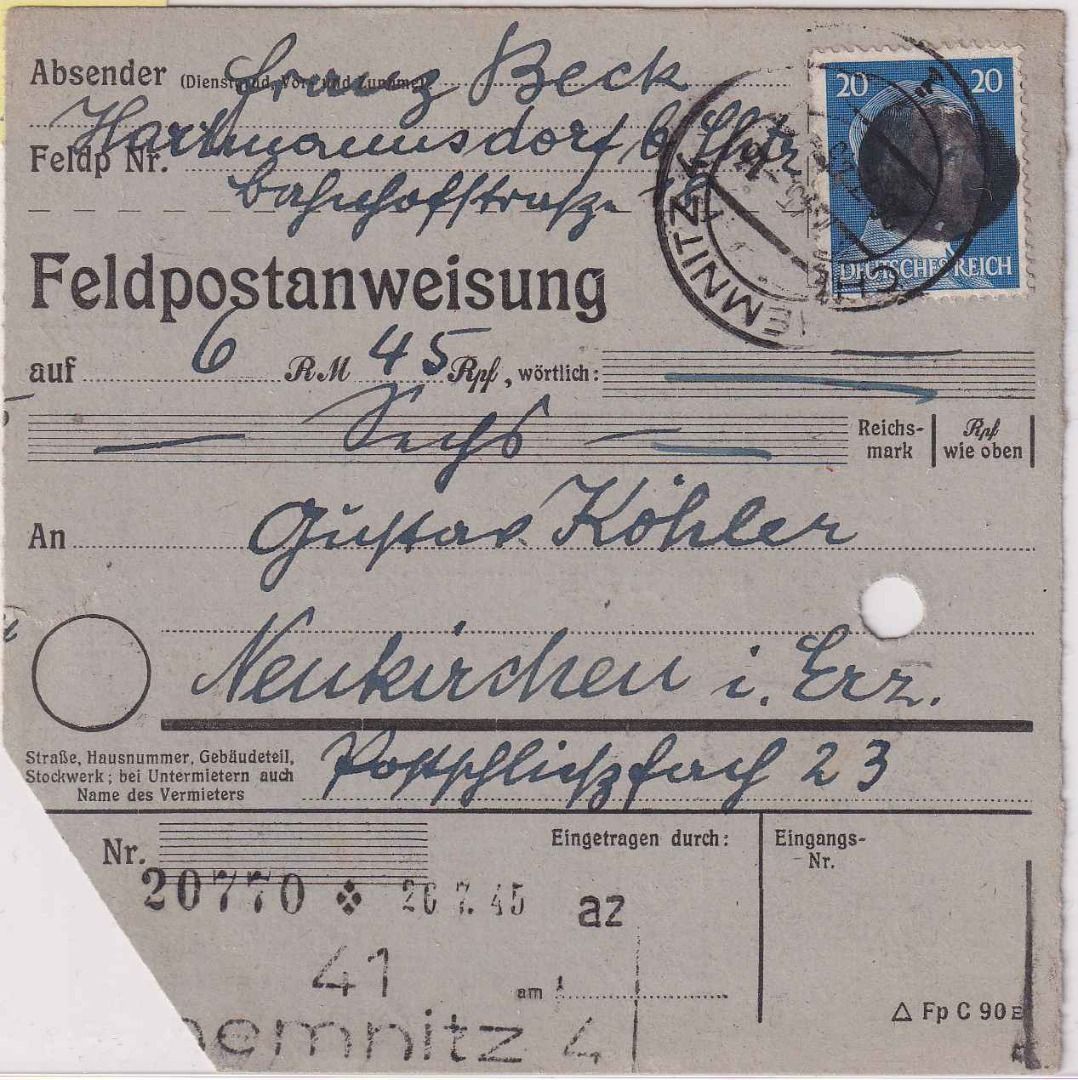 Absender (Dienstgrad, Vor- und Zuname) Franz Beck
Hartmannsdorf b.
Feldp Nr.
Bahnhofstraße
20 20
DEUTSCHES REICH
CHEMNITZ
Feldpostanweisung
auf 6 RM 45 Rpf, wörtlich:
— Sechs — Reichsmark Rpf wie oben
An Gustav Köhler
Neukirchen i. Erz.
Straße, Hausnummer, Gebäudeteil,
Stockwerk; bei Untermietern auch
Name des Vermieters
Postschließfach 23
Nr.
Eingetragen durch:
Eingangs-
Nr.
20770 26 7. 45 az
41
am
hemnitz 4
△ Fp C 90